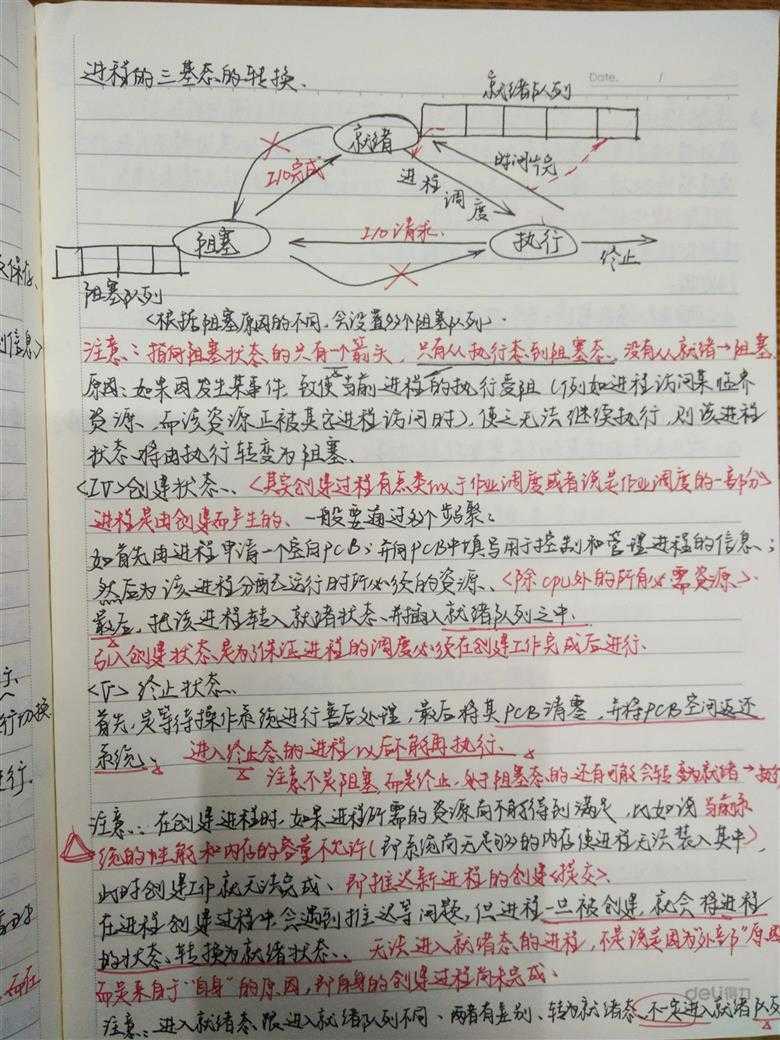 进程的三基态的转换、
Date. /
就绪队列
就绪
I/O完成
进程调度
时间片完
阻塞
I/O请求
执行
终止
阻塞队列
<根据阻塞原因的不同,会设置多个阻塞队列>.
注意:指向阻塞状态的只有一个箭头,只有从执行态到阻塞态,没有从就绪→阻塞
原因:如果因发生某事件,致使当前进程的执行受阻(例如进程访问某临界
资源、而该资源正被其它进程访问时),使之无法继续执行,则该进程
状态将由执行转变为阻塞、
<IV>创建状态、<其实创建过程有点类似于作业调度或者说是作业调度的一部分>
进程是由创建而产生的、一般要通过多个步聚:
如首先由进程申请一个空白PCB;并向PCB中填写用于控制和管理进程的信息、;
然后为该进程分配运行时所必须的资源、<除cpu外的所有必需资源>.
最后,把该进程转入就绪状态、并插入就绪队列之中.
引入创建状态、是为保证进程的调度必须在创建工作完成后进行.
<V>终止状态、
首先,是等待操作系统进行善后处理,最后将其PCB清零,并将PCB空间返还
系统、 进入终止态的进程以后不能再执行、
注意不是阻塞而是终止,处于阻塞态的还有可能会转变为就绪→执行
注意:在创建进程时,如果进程所需的资源尚不能得到满足,比如说当前系
统的性能和内存的容量不允许(即系统尚无足够的内存使进程无法装入其中),
此时创建工作就无法完成、即推迟新进程的创建<提交>、
在进程创建过程中会遇到推迟等问题,但进程一旦被创建,就会将进程
的状态、转换为就绪状态、 无法进入就绪态的进程,不是说是因为"外部"原因
而是来自于"自身"的原因,即自身的创建过程尚未完成.
注意:进入就绪态、跟进入就绪队列不同、两者有差别、转为就绪态、不一定进入就绪队列
deli得力
这保存、
行切换
进行.